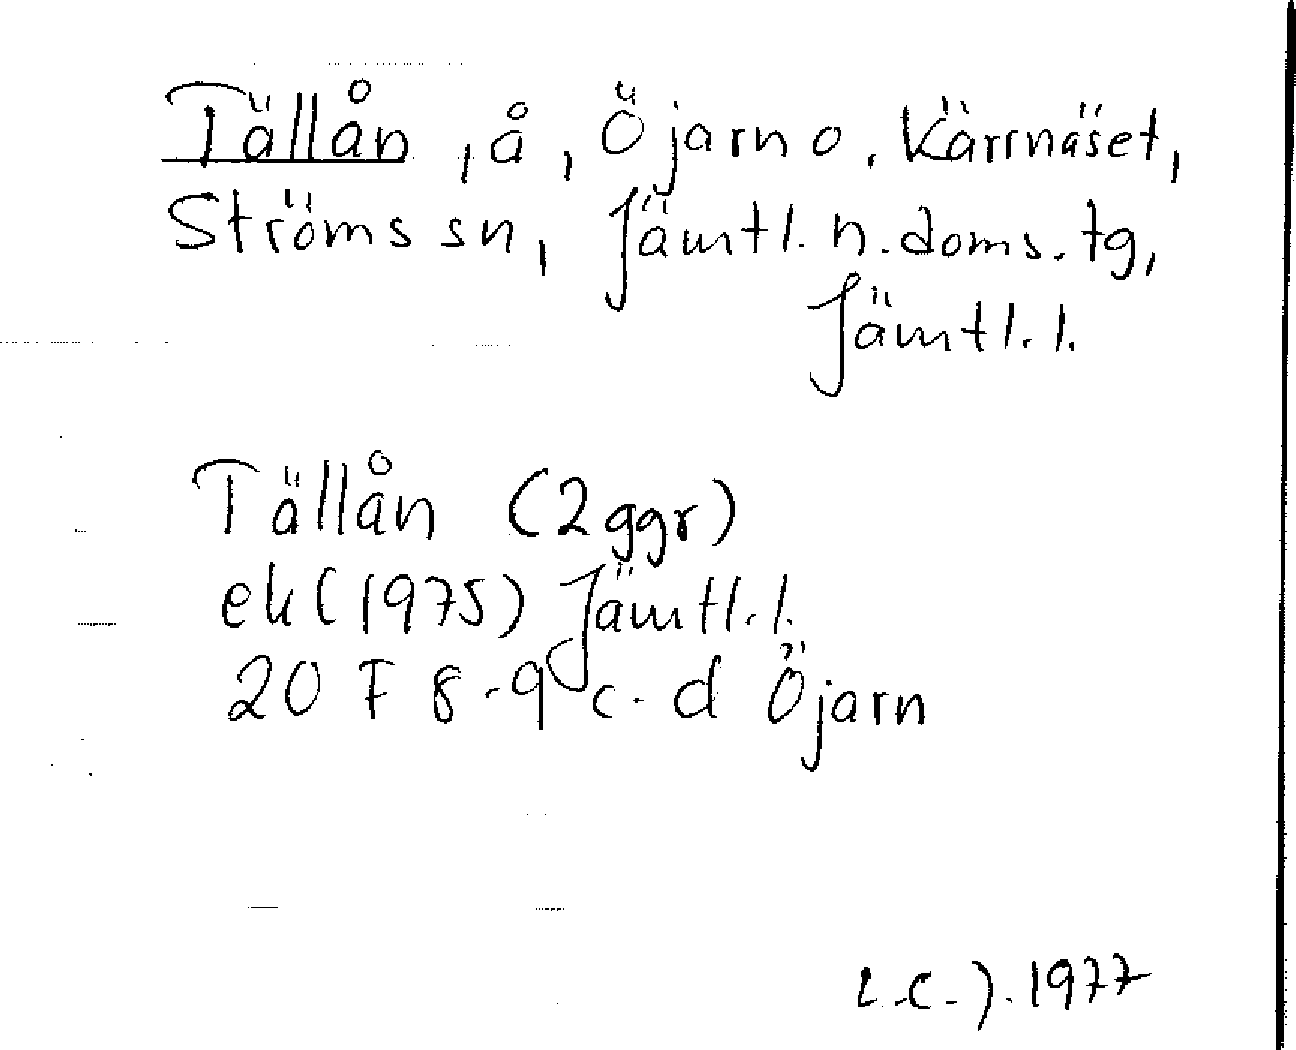 Tällån, å, Öjarn o. Kärrnäset,
Ströms sn, Jämtl. n. doms. tg,
Jämtl. l.
Tällån (2 ggr)
ek (1975) Jämtl. l.
20 F 8-9 c-d Öjarn
L.-C. J. 1977